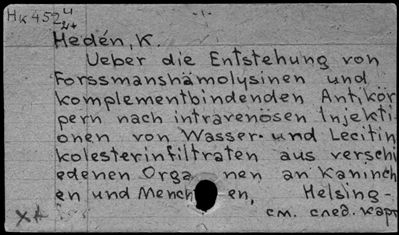 Hк 452
Hedén, K.
Ueber die Entstehung von
Forssmanshämolysinen und
komplementbindenden Antikör
pern nach intravenösen Injekti-
onen von Wasser- und Lecitin
kolesterinfiltraten aus verschi
edenen Orga nen an Kaninch
en und Mench en, Helsing-
см. след. карт